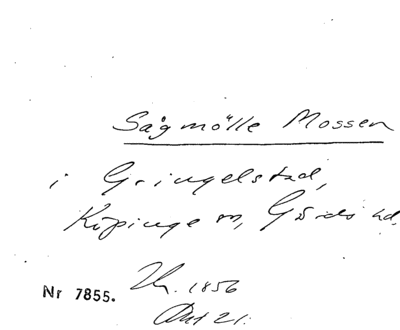 Sågmölle Mossen
i Gringelstad,
Köpinge sn, Gärds hd.
Nr 7855.
1856
Akt 21.